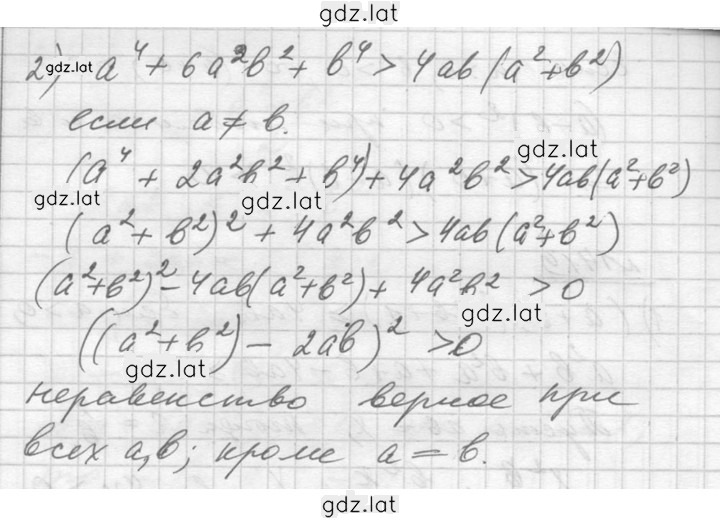 gdz.lat
2) a⁴ + 6a²b² + b⁴ > 4ab(a²+b²)
gdz.lat
если a ≠ b.
gdz.lat
(a⁴ + 2a²b² + b⁴) + 4a²b² > 4ab(a²+b²)
gdz.lat
(a² + b²)² + 4a²b² > 4ab(a²+b²)
(a²+b²)² - 4ab(a²+b²) + 4a²b² > 0
gdz.lat
((a²+b²) - 2ab)² > 0
gdz.lat
неравенство верное при
всех a,b; кроме a = b.
gdz.lat